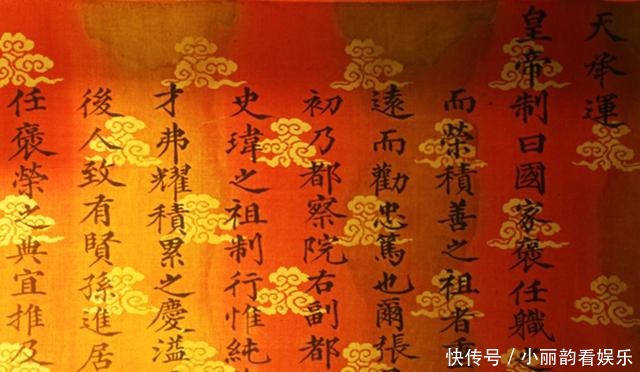 天承運
皇帝制曰國家褒任職
而榮積善之祖者
遠而勸忠篤也爾張
初乃都察院右副都
史瑋之祖制行惟純
才弗耀積累之慶溢
後人致有賢孫進居
任褒榮之典宜推及
快传号／小丽韵看娱乐